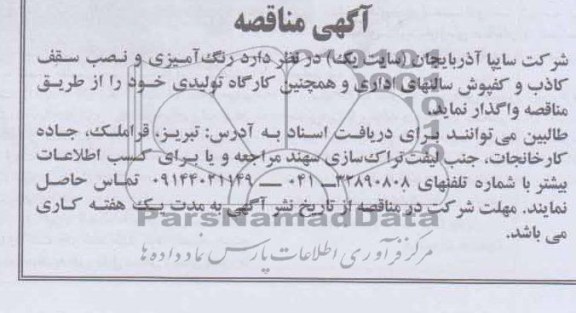 آگهی مناقصه
شرکت سایپا آذربایجان (سایت یک) در نظر دارد رنگ‌آمیزی و نصب سقف
کاذب و کفپوش سالنهای اداری و همچنین کارگاه تولیدی خود را از طریق
مناقصه واگذار نماید.
طالبین می‌توانند برای دریافت اسناد به آدرس: تبریز، قراملک، جاده
کارخانجات، جنب لیفت‌تراک‌سازی سهند مراجعه و یا برای کسب اطلاعات
بیشتر با شماره تلفنهای ۳۲۸۹۰۸۰۸ــ ۰۴۱ ــ ۰۹۱۴۴۰۲۱۱۴۹ تماس حاصل
نمایند. مهلت شرکت در مناقصه از تاریخ نشر آگهی به مدت یک هفته کاری
ParsNamadData
می باشد.
مرکز فرآوری اطلاعات پارس نماد داده ها